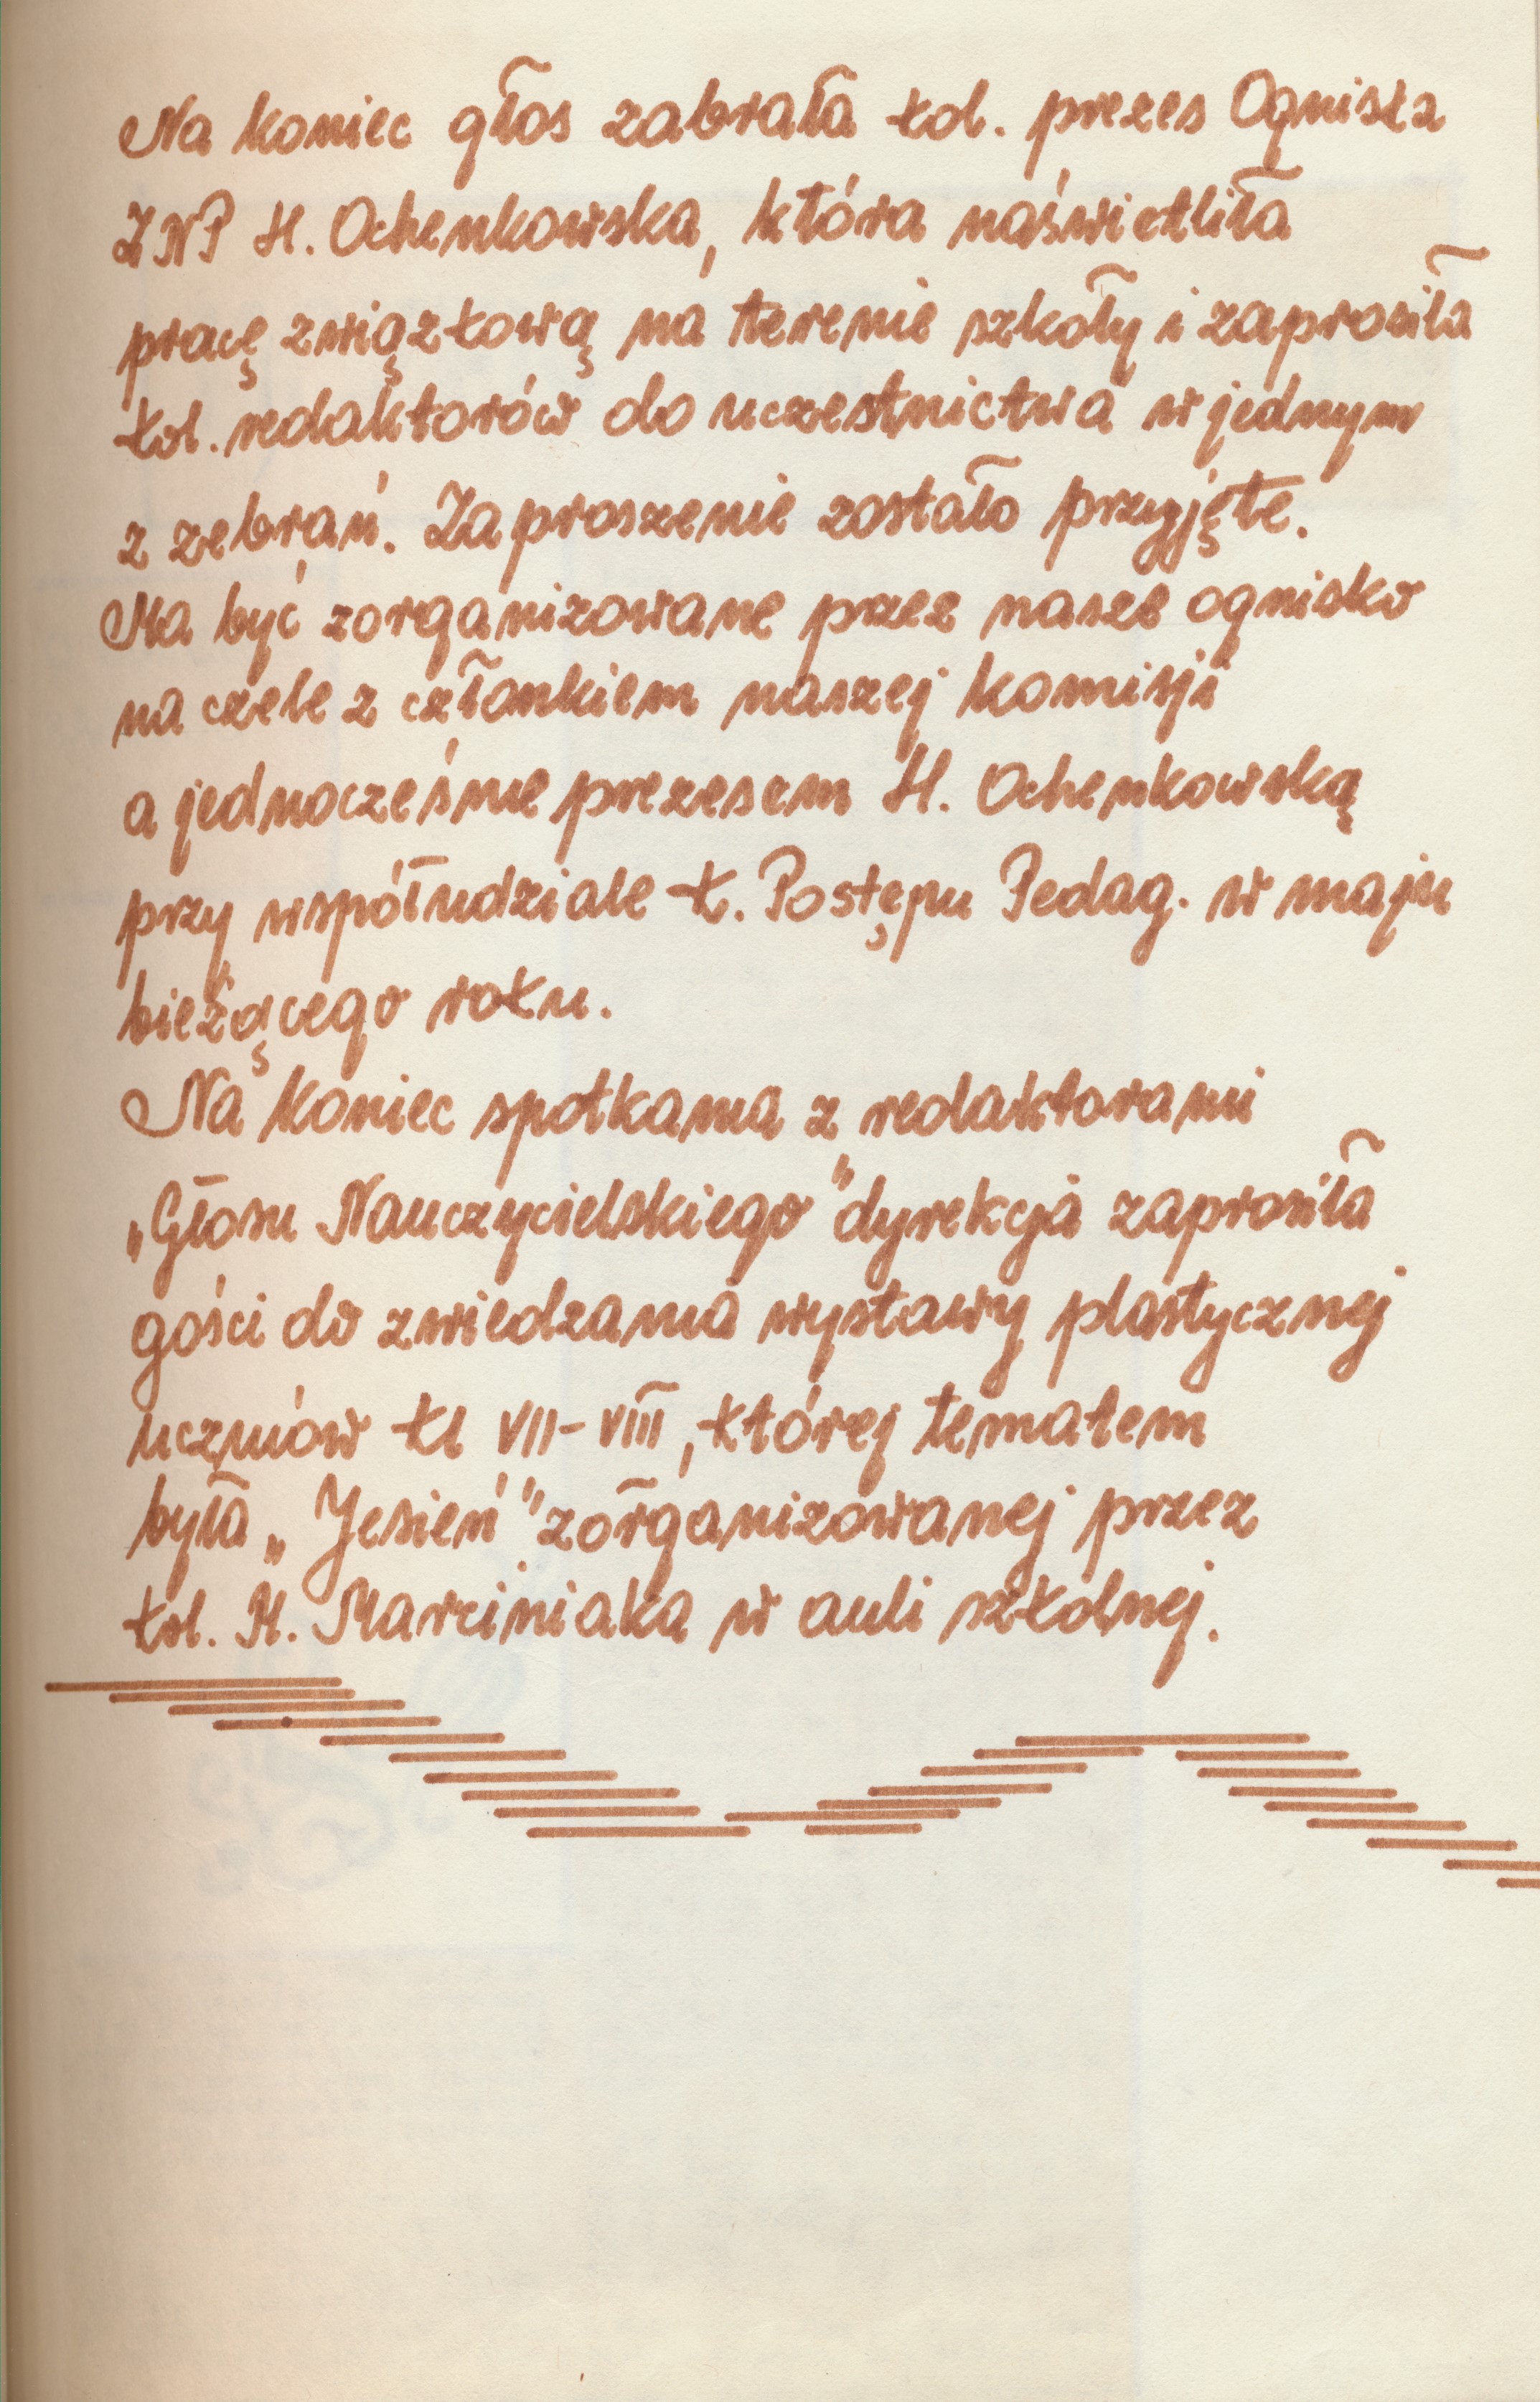 Na koniec głos zabrała kol. prezes Ogniska
ZNP H. Ochenkowska, która naświetliła
pracę związkową na terenie szkoły i zaprosiła
kol. redaktorów do uczestnictwa w jednym
z zebrań. Zaproszenie zostało przyjęte.
Ma być zorganizowane przez nasze ognisko
na czele z członkiem naszej komisji
a jednocześnie prezesem H. Ochenkowską
przy współudziale k. Postępu Pedag. w maju
bieżącego roku.
Na koniec spotkania z redaktorami
„Głosu Nauczycielskiego" dyrekcja zaprosiła
gości do zwiedzania wystawy plastycznej
uczniów kl VII-VIII, której tematem
była „Jesień" zorganizowanej przez
kol. H. Marciniaka w auli szkolnej.